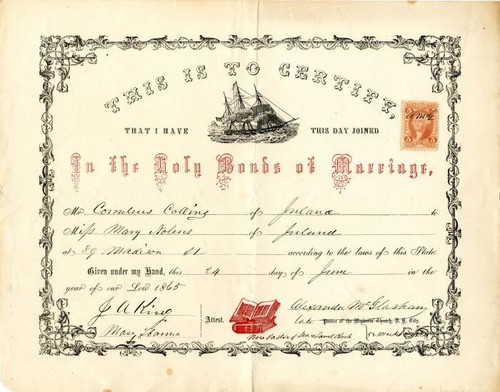 THIS IS TO CERTIFY,
THAT I HAVE THIS DAY JOINED
In the Holy Bonds of Marriage,
Mr. Cornelius Collins of Irland to
Miss Mary Nolens of Irland
at Madison st according to the laws of this State.
Given under my Hand, this 24 day of June in the
year of our Lord 1865
J A King
Mary
Attest.
Alexander McGlashan
late Pastor of the Mariners' Church, N. Y. City.
Now Pastor of